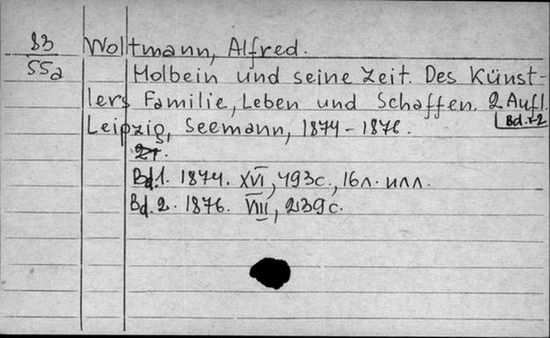 83 Woltmann, Alfred.
55a Holbein und seine Zeit. Des Künst-
lers Familie, Leben und Schaffen. 2 Aufl.
Leipzig, Seemann, 1874-1876. Bd. 1-2
2т.
Bd.1. 1874. XVI, 493с., 16л. илл.
Bd. 2. 1876. VIII, 239с.